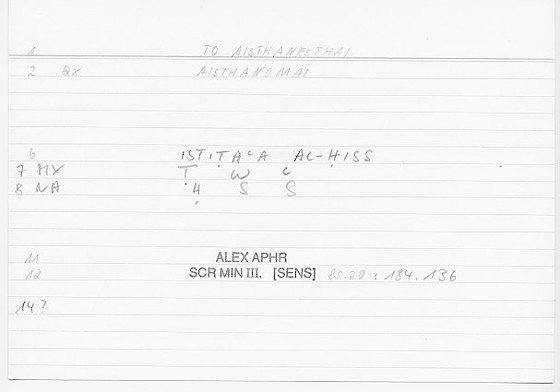 1 TO AISTHANESTHAI
2 QX AISTHANOMAI
6 ISTIṬAᶜA AL-ḤISS
7 MX Ṭ W ᶜ
8 NA Ḥ S S
11 ALEX APHR
12 SCR MIN III. [SENS] 85.20 : 184.136
14?